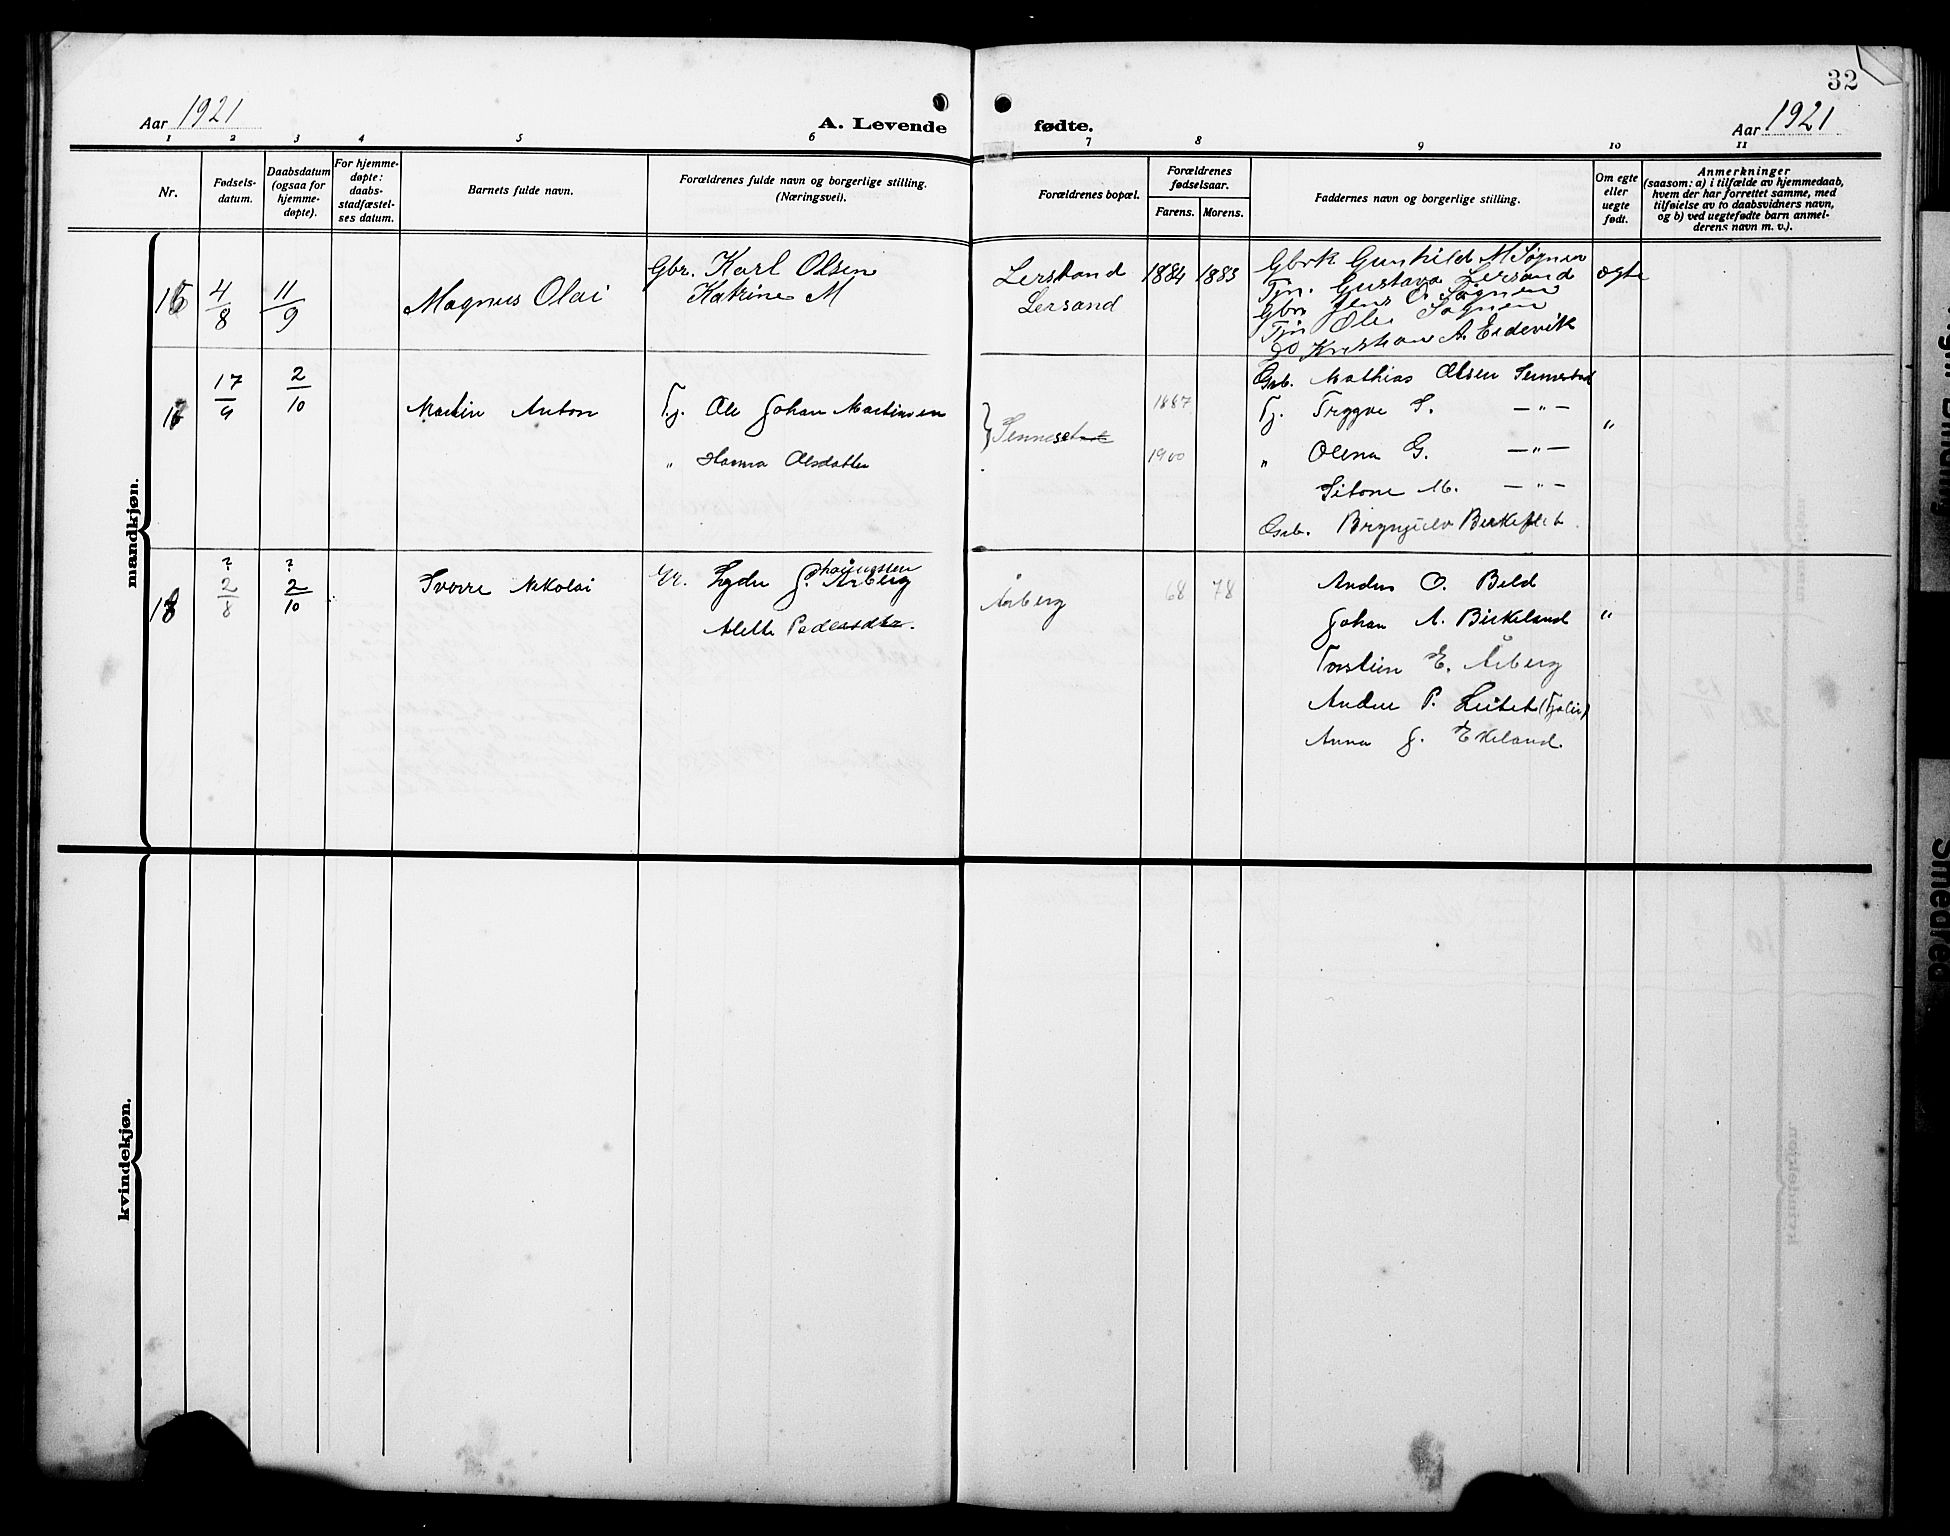 32
Aar 1921
A. Levende fødte.
Aar 1921
1 2 3 4 5 6 7 8 9 10 11
Nr.
Fødsels-
datum.
Daabsdatum
(ogsaa for
hjemme-
døpte).
For hjemme-
døpte:
daabs-
stadfæstel-
ses datum.
Barnets fulde navn.
Forældrenes fulde navn og borgerlige stilling.
(Næringsvei).
Forældrenes bopæl.
Forældrenes
fødselsaar.
Farens. Morens.
Faddernes navn og borgerlige stilling.
Om egte
eller
uegte
født.
Anmerkninger
(saasom: a) i tilfælde av hjemmedaab,
hvem der har forrettet samme, med
tilføielse av to daabsvidners navn,
og b) ved uegtefødte barn anmel-
derens navn m. v.).
mandkjøn.
4/8 11/9 Magnus Olai
Gbr. Karl Olsen
Katrine M
Lerstand
Lersand
1884 1883
Gbrk Gunhild M Søgnen
Tjn. Gustava Lersand
Gbr Jens O. Søgnen
Tjn Ole Søgnen
Do Kristian A. Eidevik
ægte
17/9 2/10 Martin Anton
Tj. Ole Johan Martinsen
" Hanna Olsdatter
Sennestad
1887
1900
Gsb. Mathias Olsen Sennestad
Tj. Tryggve S. — " —
" Olena G. — " —
M. — " —
Gsb.
"
? ?
2/8 2/10 Sverre Nikolai
Gr. J. Årberg
Alette Pedersdtr.
Årberg
68 78
Anders O. Beld
Johan A. Birkeland
Torstein E. Årberg
P.
Anna J. Ekeland.
"
kvindekjøn.